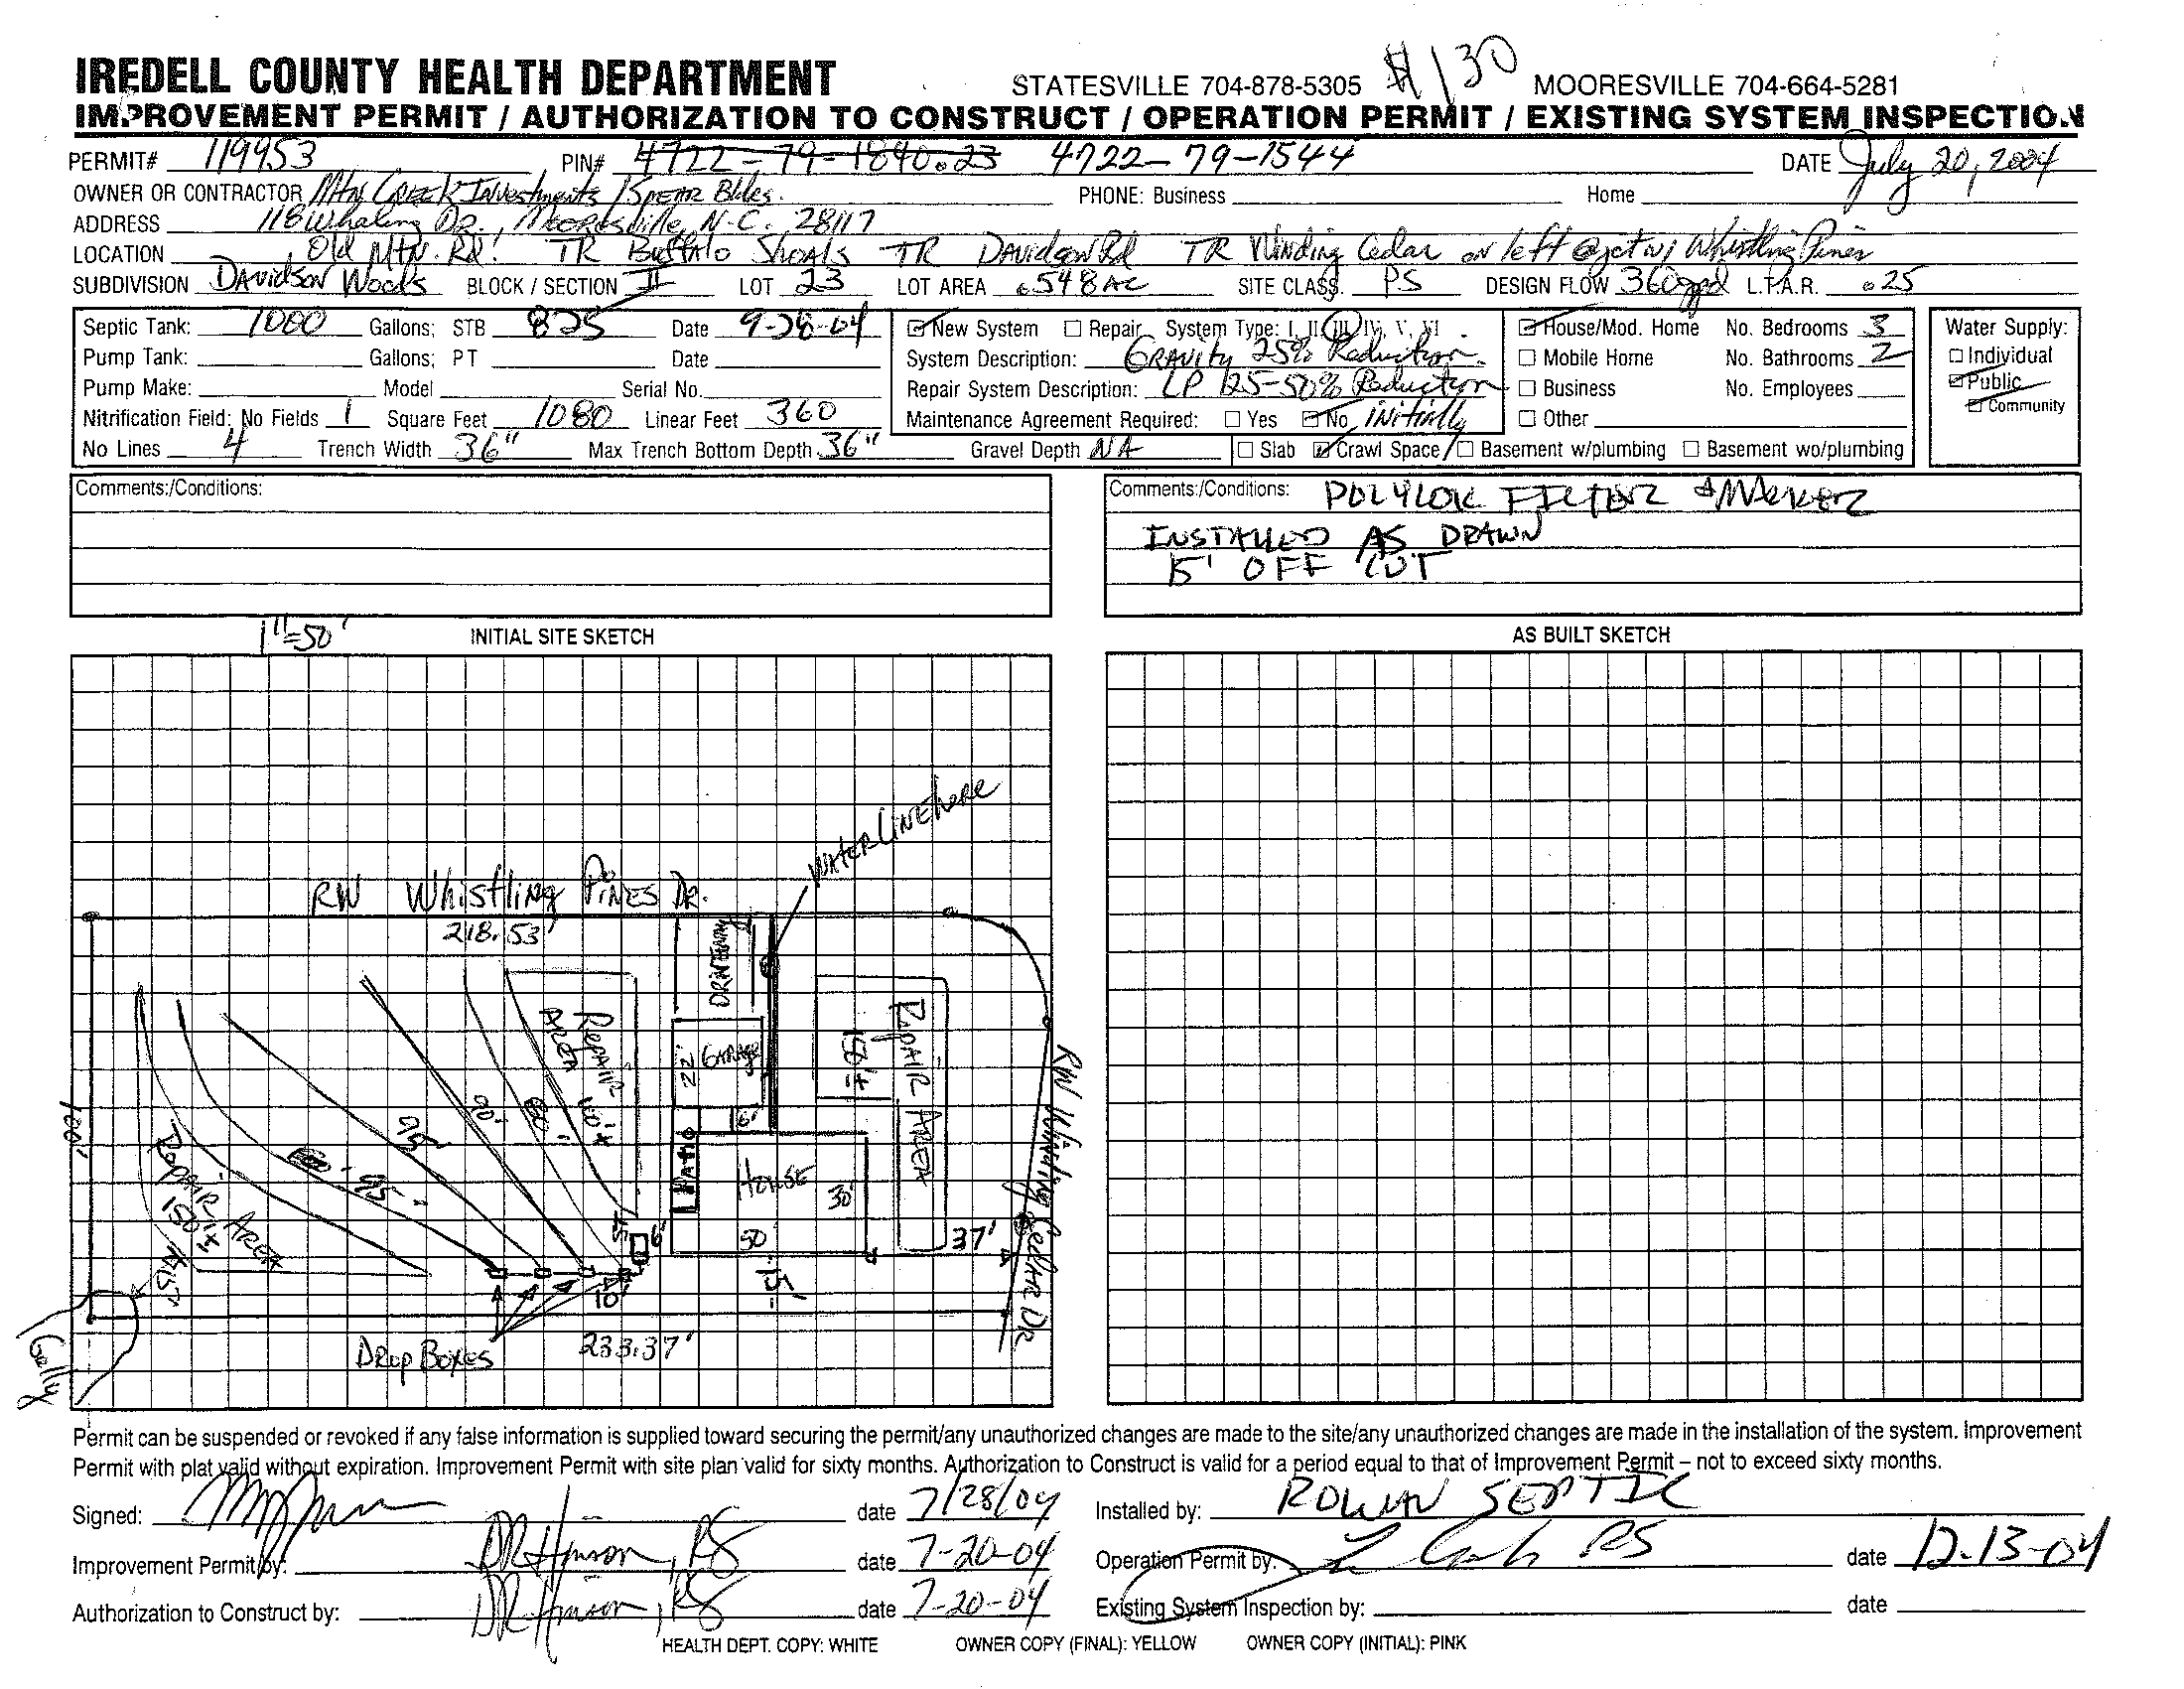 IREDELL COUNTY HEALTH DEPARTMENT STATESVILLE 704-878-5305 #130 MOORESVILLE 704-664-5281
IMPROVEMENT PERMIT / AUTHORIZATION TO CONSTRUCT / OPERATION PERMIT / EXISTING SYSTEM INSPECTION
PERMIT# 119953 PIN# 4722-79-1840.23 4722-79-1544 DATE July 20, 2004
OWNER OR CONTRACTOR Mtn Creek Investments / Spear Bldrs. PHONE: Business Home
ADDRESS 118 Whaling Dr., Mooresville, N.C. 28117
LOCATION Old Mtn. Rd. TR Buffalo Shoals TR Davidson Rd TR Winding Cedar on left @ jct w/ Whistling Pines
SUBDIVISION Davidson Woods BLOCK / SECTION II LOT 23 LOT AREA .548 AC SITE CLASS. PS DESIGN FLOW 360gpd L.T.A.R. .25
Septic Tank: 1000 Gallons; STB 825 Date 9-28-04
Pump Tank: Gallons; PT Date
Pump Make: Model Serial No.
Nitrification Field: No Fields 1 Square Feet 1080 Linear Feet 360
No Lines 4 Trench Width 36" Max Trench Bottom Depth 36" Gravel Depth NA
New System Repair System Type: I, II, III, IV, V, VI
System Description: Gravity 25% Reduction
Repair System Description: LP 125-50% Reduction
Maintenance Agreement Required: Yes No initially
House/Mod. Home No. Bedrooms 3
Mobile Home No. Bathrooms 2
Business No. Employees
Other
Slab Crawl Space Basement w/plumbing Basement wo/plumbing
Water Supply:
Individual
Public
Community
Comments:/Conditions:
Comments:/Conditions: POLYLOK FILTER & MARKER
INSTALLED AS DRAWN
15' OFF CUT
1"=50' INITIAL SITE SKETCH
AS BUILT SKETCH
WATER LINE here
RW Whistling Pines Dr.
218.53'
DRIVEWAY
Repair Area
22' GARAGE
Repair Area
RW Winding Cedar Dr
100'
95'
90'
6'
PATIO
House
30'
50'
95'
Repair Area
150'±
15'
6'
37'
15'
10'
Drop Boxes
233.37'
Gully
Permit can be suspended or revoked if any false information is supplied toward securing the permit/any unauthorized changes are made to the site/any unauthorized changes are made in the installation of the system. Improvement
Permit with plat valid without expiration. Improvement Permit with site plan valid for sixty months. Authorization to Construct is valid for a period equal to that of Improvement Permit – not to exceed sixty months.
Signed: date 7/28/04 Installed by: ROWAN SEPTIC
Improvement Permit by: DR Hinson, RS date 7-20-04 Operation Permit by: RS date 12-13-04
Authorization to Construct by: DR Hinson, RS date 7-20-04 Existing System Inspection by: date
HEALTH DEPT. COPY: WHITE OWNER COPY (FINAL): YELLOW OWNER COPY (INITIAL): PINK